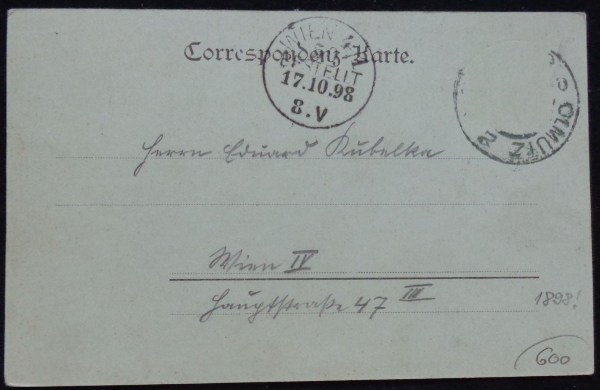 Correspondenz-Karte.
WIEN 4/1
BESTELLT
17.10.98
8.V
OLMÜTZ
Herrn Eduard Kubelka
Wien IV
Hauptstraße 47 III
1898!
600